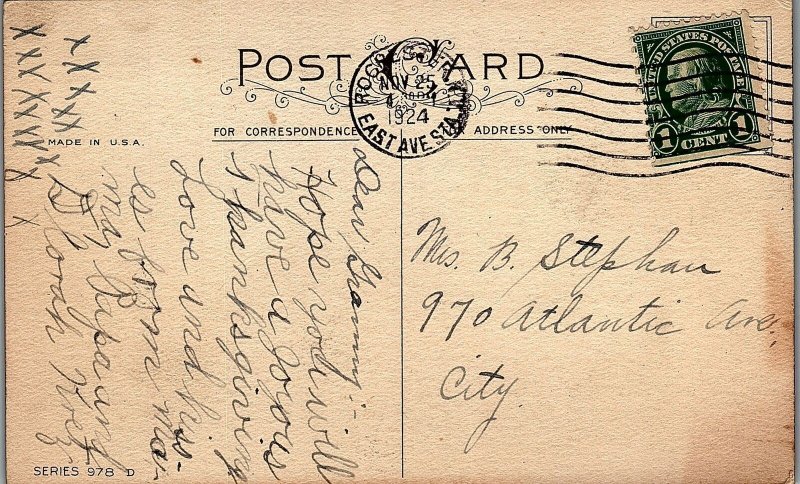 POST CARD
FOR CORRESPONDENCE
ADDRESS ONLY
MADE IN U.S.A.
NOV 25
1924
EAST AVE STA.
UNITED STATES POSTAGE
1 CENT 1
Dear Grammy:-
Hope you will
have a Joyous
Thanksgiving
Love and kis-
es from Ma-
ma, Papa and
x x x x x
x x x x x x x x x
Mrs. B. Stephan
970 Atlantic Ave.
City.
SERIES 978 D